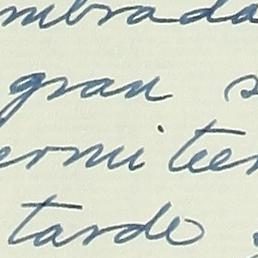 mbrada
gran s
ermiteer
tarde